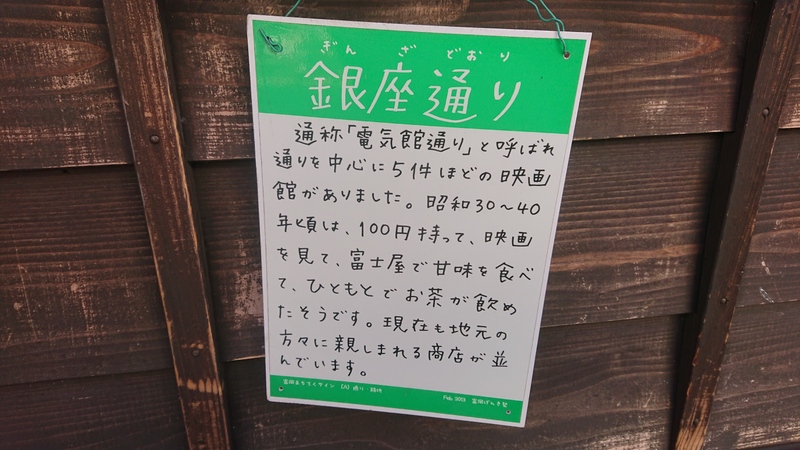 ぎん ざ どおり
銀座通り
通称「電気館通り」と呼ばれ
通りを中心に5件ほどの映画
館がありました。昭和30〜40
年頃は、100円持って、映画
を見て、富士屋で甘味を食べ
て、ひともとでお茶が飲め
たそうです。現在も地元の
方々に親しまれる商店が並
んでいます。
富岡まちラくサイン (A) 通り・路地
Feb. 2013 富岡げんき塾